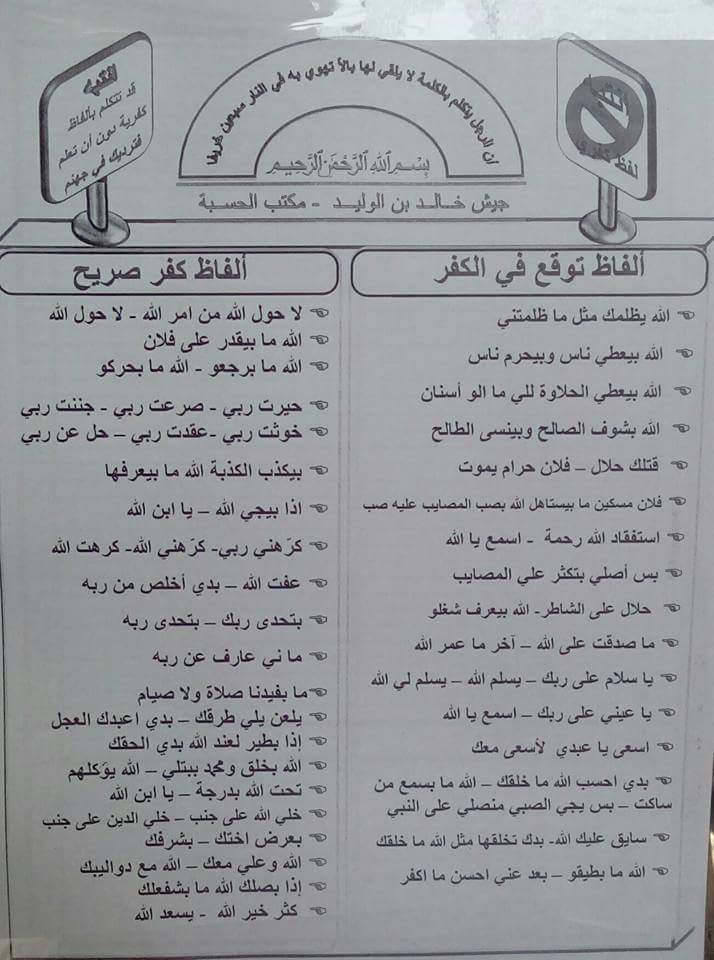 انتبه
قد تتكلم بألفاظ
كفرية بدون أن تعلم
فترديك في جهنم
أن الرجل يتكلم بالكلمة لا يلقي لها بالاً تهوي به في النار سبعين خريفا
انتبه
لفظ كفري
بِسْمِ اللهِ الرَّحْمَنِ الرَّحِيمِ
جيش خالد بن الوليد - مكتب الحسبة
ألفاظ توقع في الكفر
الله يظلمك مثل ما ظلمتني
الله بيعطي ناس وبيحرم ناس
الله بيعطي الحلاوة للي ما الو أسنان
الله بشوف الصالح وبينسى الطالح
قتلك حلال – فلان حرام يموت
فلان مسكين ما بيستاهل الله بصب المصايب عليه صب
استفقاد الله رحمة - اسمع يا الله
بس أصلي بتكثر علي المصايب
حلال على الشاطر- الله بيعرف شغلو
ما صدقت على الله – آخر ما عمر الله
يا سلام على ربك – يسلم الله – يسلم لي الله
يا عيني على ربك – اسمع يا الله
اسعى يا عبدي لأسعى معك
بدي احسب الله ما خلقك – الله ما بسمع من
ساكت – بس يجي الصبي منصلي على النبي
سايق عليك الله- بدك تخلقها مثل الله ما خلقك
الله ما بطيقو – بعد عني احسن ما اكفر
ألفاظ كفر صريح
لا حول الله من امر الله - لا حول الله
الله ما بيقدر على فلان
الله ما برجعو - الله ما بحركو
حيرت ربي - صرعت ربي - جننت ربي
خوثت ربي -عقدت ربي – حل عن ربي
بيكذب الكذبة الله ما بيعرفها
اذا بيجي الله – يا ابن الله
كرّهني ربي- كرّهني الله- كرهت الله
عفت الله – بدي أخلص من ربه
بتحدى ربك – بتحدى ربه
ما ني عارف عن ربه
ما بفيدنا صلاة ولا صيام
يلعن يلي طرقك – بدي اعبدك العجل
إذا بطير لعند الله بدي الحقك
الله بخلق ومحمد ببتلي – الله يوكلهم
تحت الله بدرجة – يا ابن الله
خلي الله على جنب – خلي الدين على جنب
بعرض اختك – بشرفك
الله وعلي معك – الله مع دواليبك
إذا بصلك الله ما بشفعلك
كثر خير الله - يسعد الله